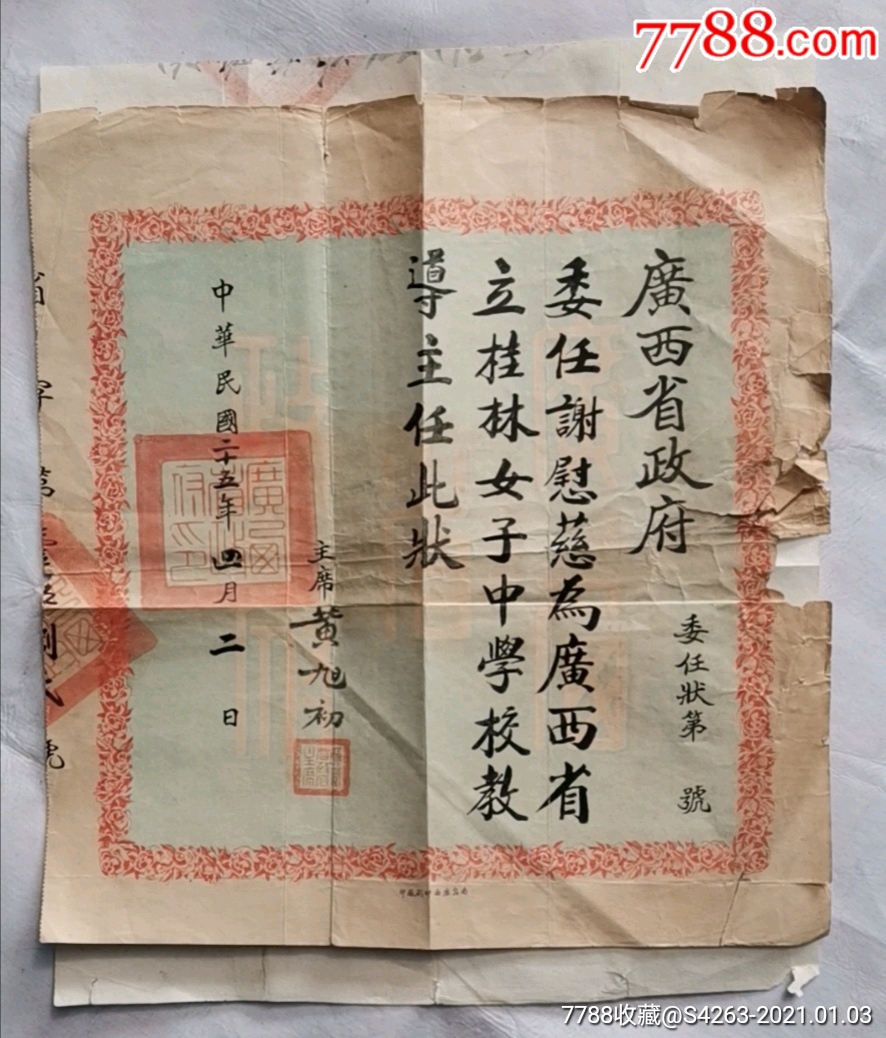 7788.com
廣西省政府
委任狀第 號
委任謝慰慈為廣西省
立桂林女子中學校教
導主任此狀
主席黃旭初
中華民國二十五年四月二日
廣西省政府印
7788收藏@S4263-2021.01.03